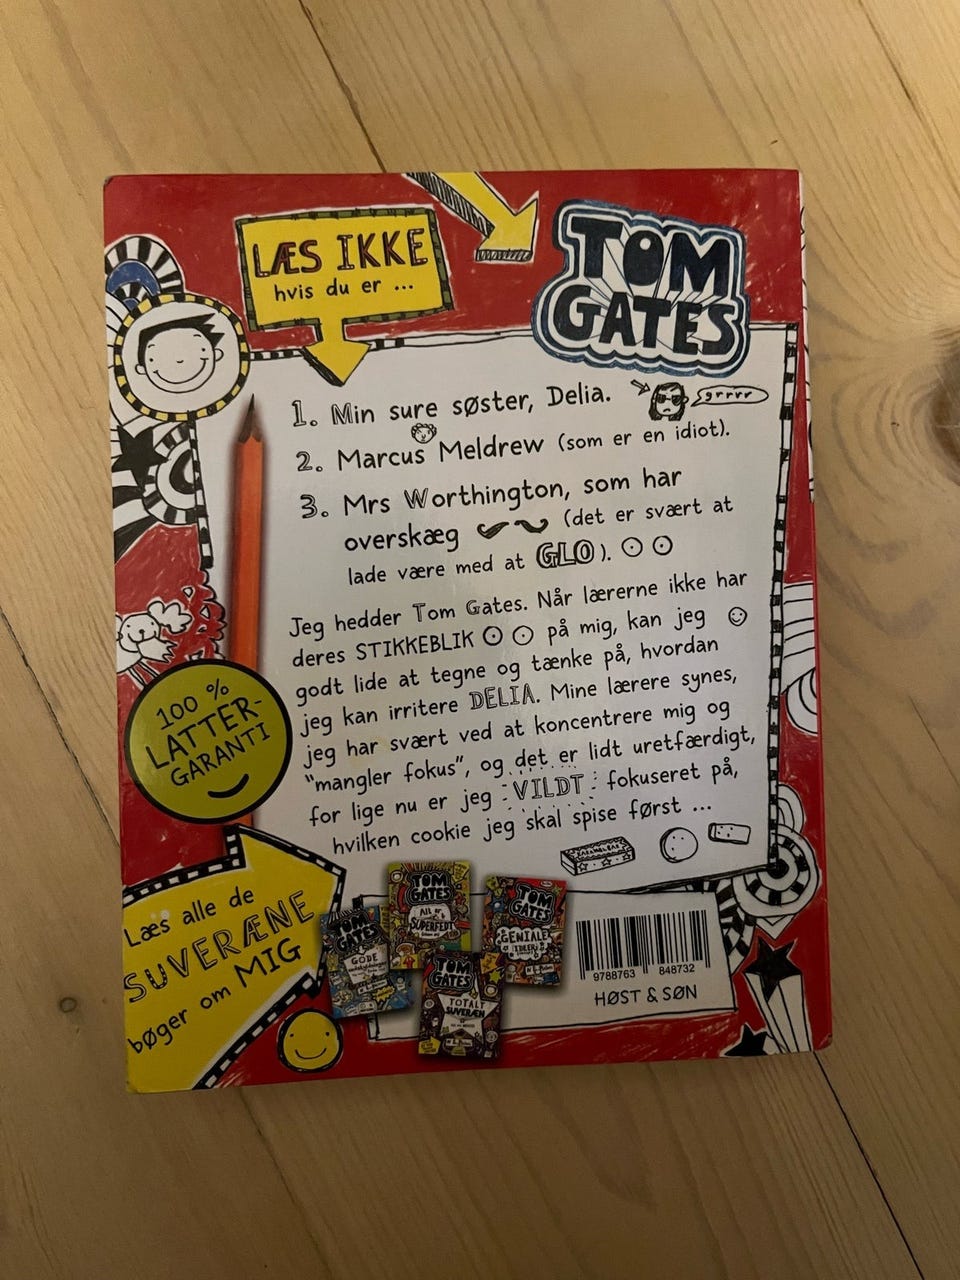 LÆS IKKE
hvis du er ...
TOM
GATES
1. Min sure søster, Delia.
grrrr
2. Marcus Meldrew (som er en idiot).
3. Mrs Worthington, som har
overskæg (det er svært at
lade være med at GLO).
Jeg hedder Tom Gates. Når lærerne ikke har
deres STIKKEBLIK på mig, kan jeg
godt lide at tegne og tænke på, hvordan
jeg kan irritere DELIA. Mine lærere synes,
jeg har svært ved at koncentrere mig og
"mangler fokus", og det er lidt uretfærdigt,
for lige nu er jeg VILDT fokuseret på,
hvilken cookie jeg skal spise først ...
100 %
LATTER-
GARANTI
Læs alle de
SUVERÆNE
bøger om MIG
TOM
GATES
Alt er
SUPERFEDT
TOM
GATES
GENIALE
IDEER
TOM
GATES
GODE
TOM
GATES
TOTALT
SUVERÆN
9788763 848732
HØST & SØN